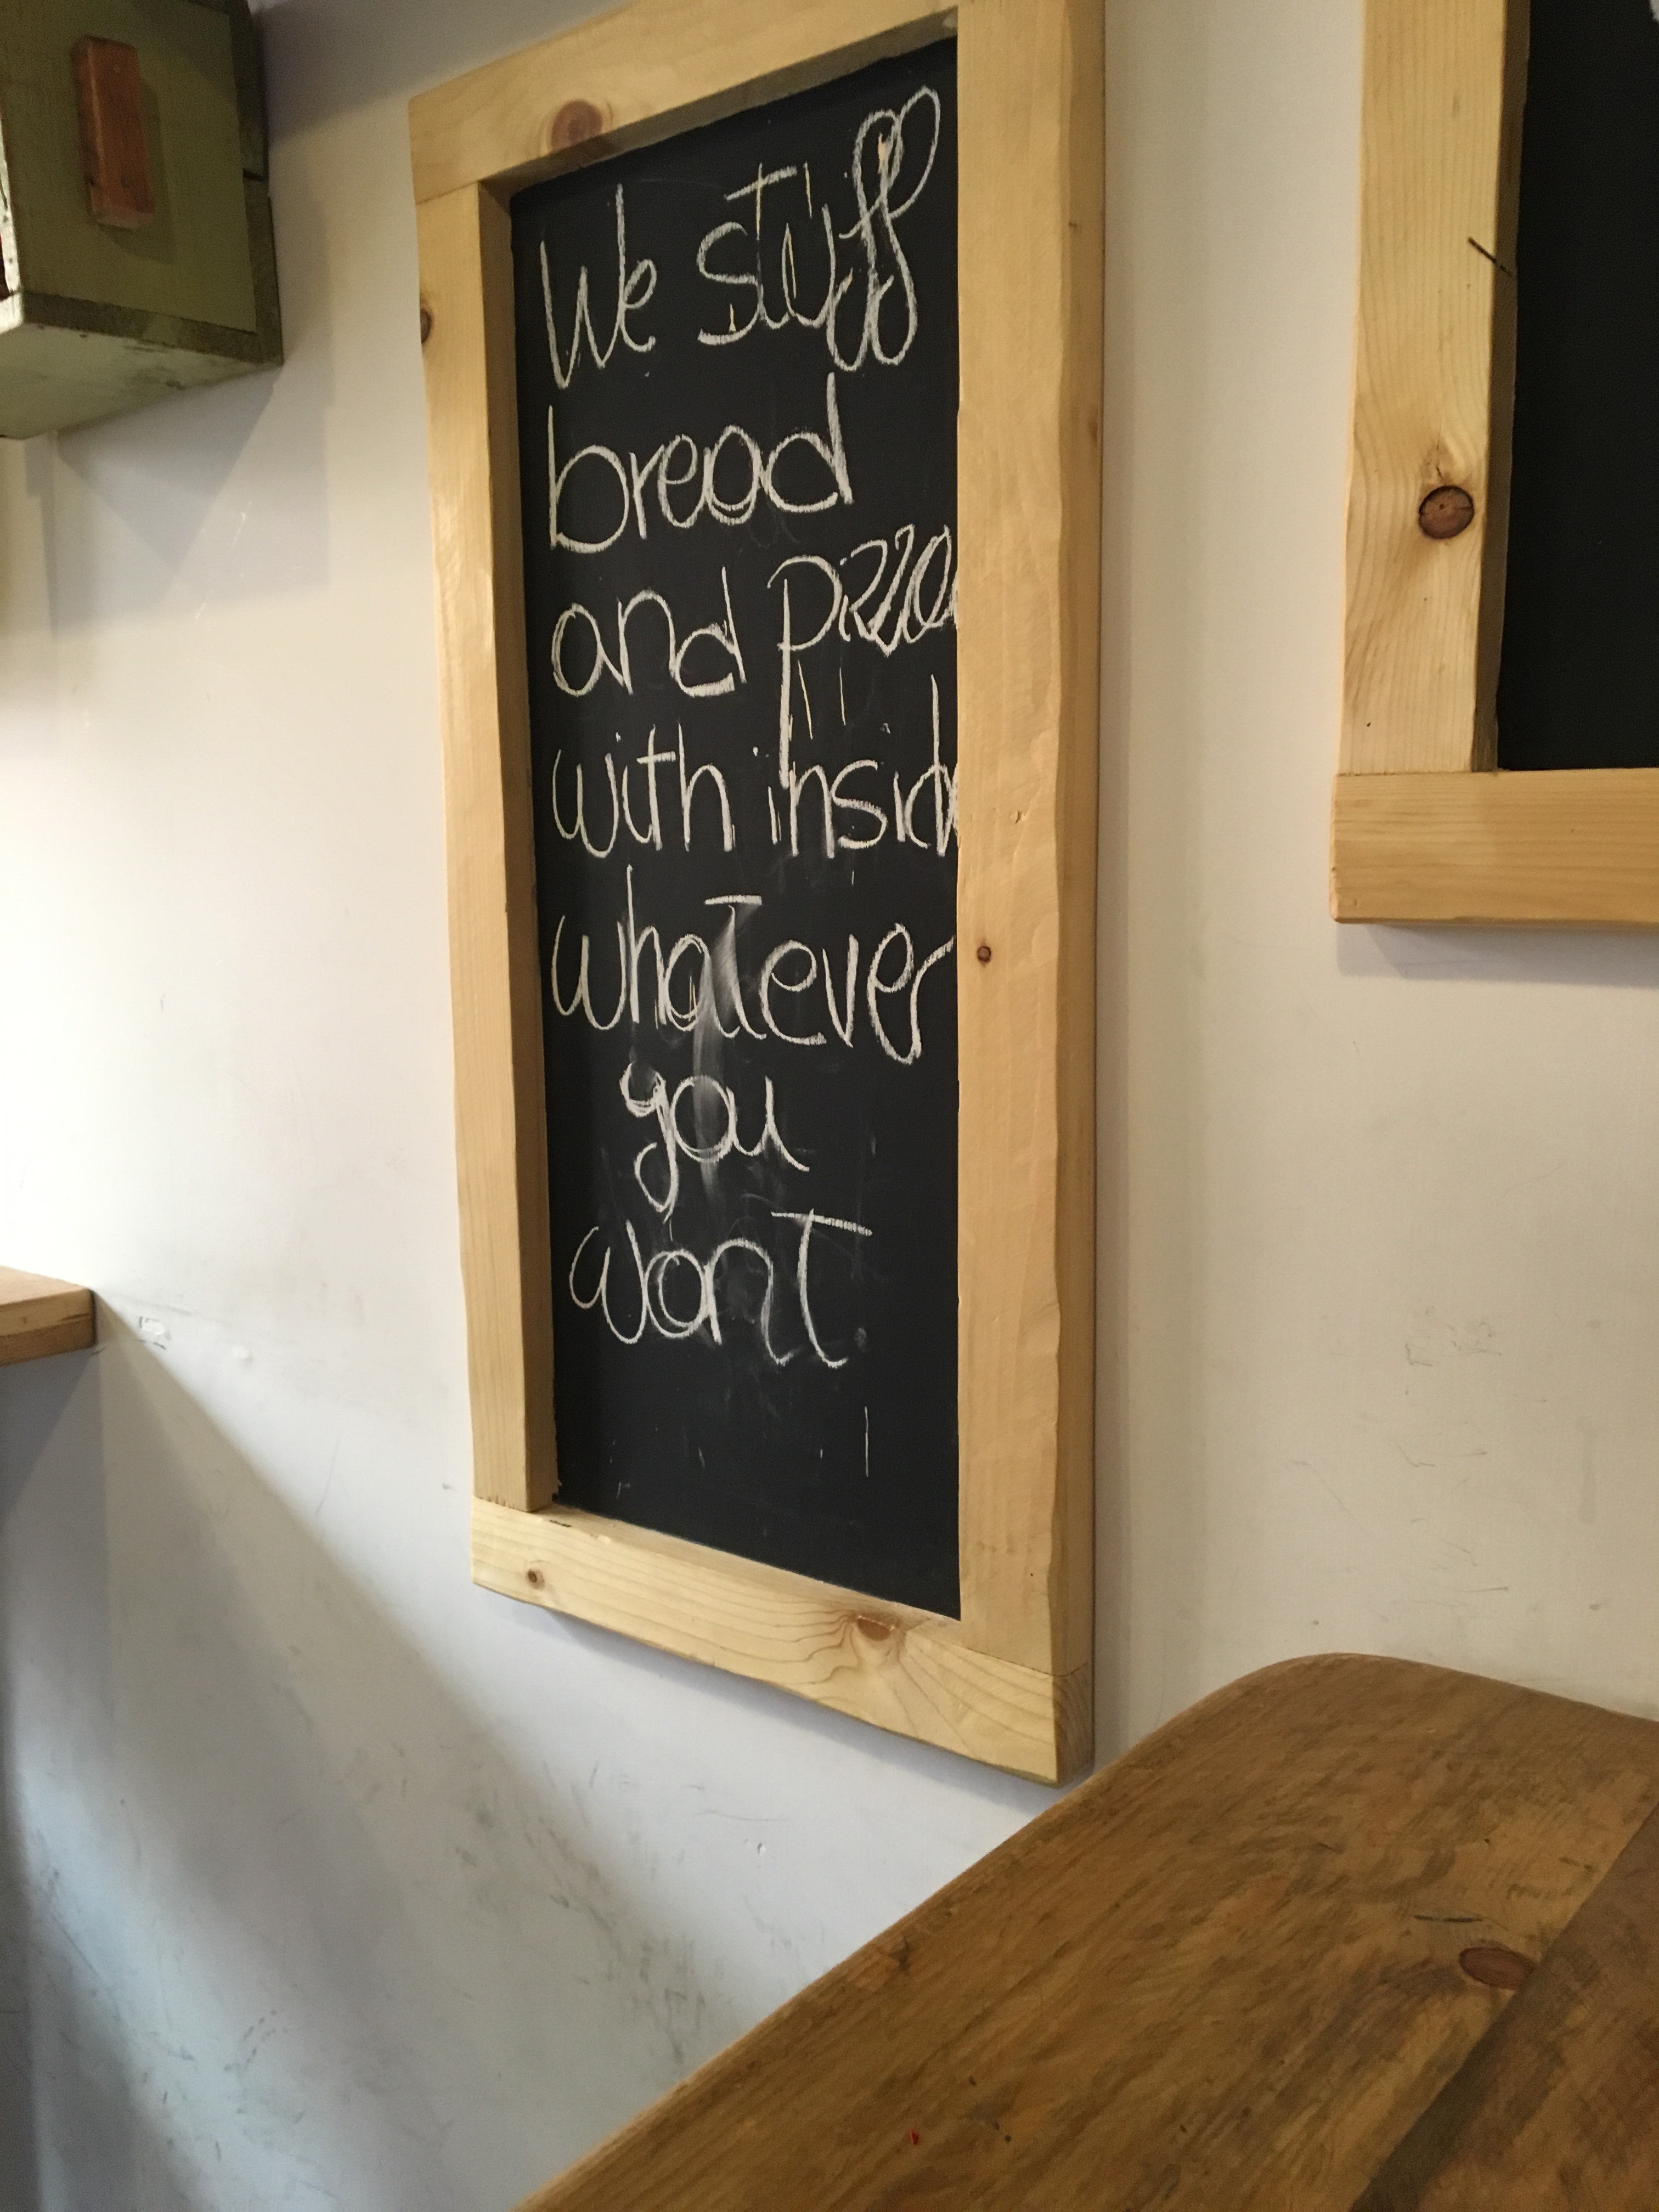 We stuff
bread
and pizza
with inside
whatever
you
want